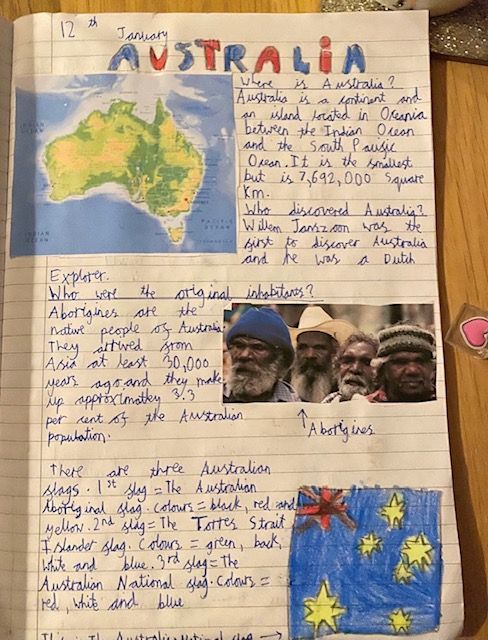 12th January
AUSTRALIA
Where is Australia?
Australia is a continent and
an island located in Oceania
between the Indian Ocean
and the South Pacific
Ocean. It is the smallest
but is 7,692,000 square
Km.
Who discovered Australia?
Willem Janszoon was the
first to discover Australia
and he was a Dutch
Explorer.
Who were the original inhabitans?
Aborigines are the
native people of Australia
They arrived from
Asia at least 30,000
years ago and they make
up approximatley 3.3
per cent of the Australian
population.
↑
Aborigines
There are three Australian
flags. 1st flag = The Australian
Aboriginal flag. colours = black, red and
yellow. 2nd flag = The Torres Strait
Islander flag. Colours = green, back,
white and blue. 3rd flag = The
Australian National flag. Colours =
red, white and blue
This is the Australian National flag →
INDIAN
OCEAN
PACIFIC